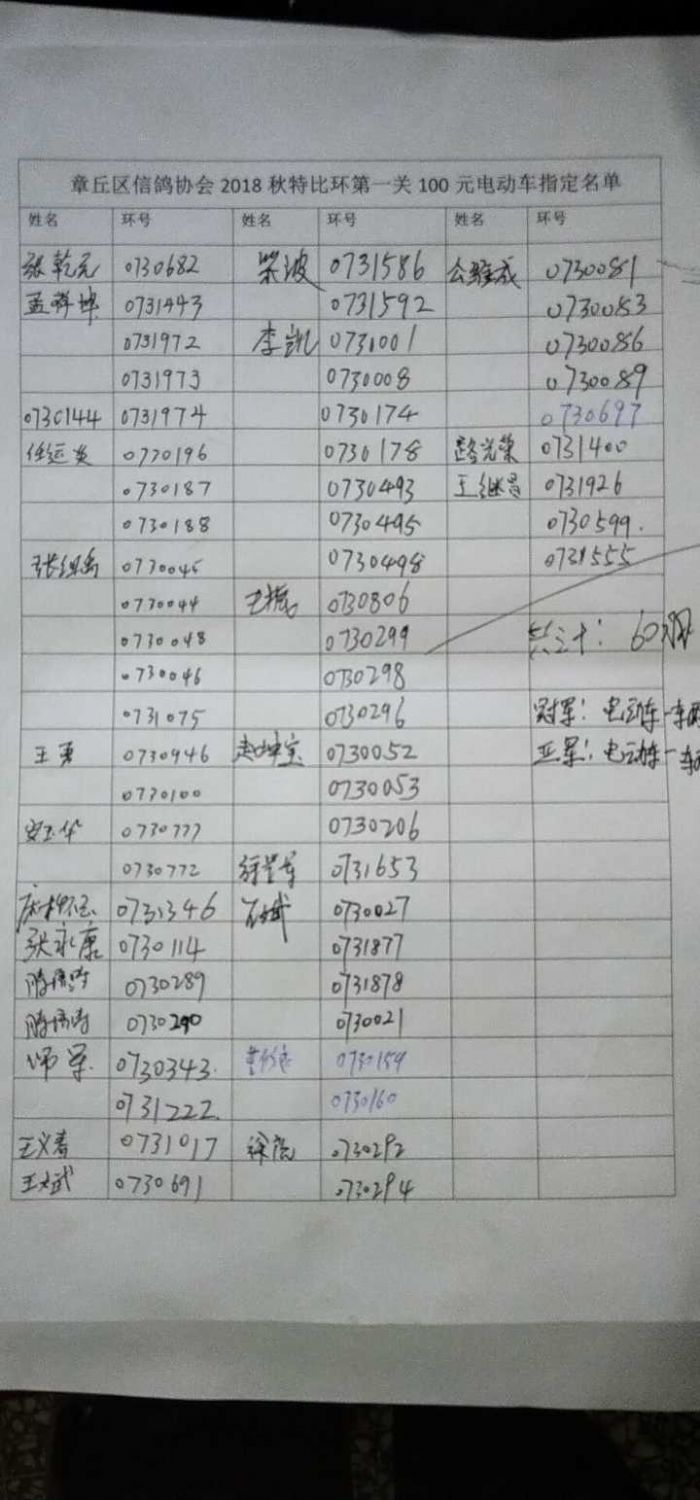 章丘区信鸽协会 2018 秋特比环第一关 100 元电动车指定名单
姓名 环号 姓名 环号 姓名 环号
张乾元 0730682 柴波 0731586 0730081
孟祥坤 0731443 0731592 0730083
0731972 李凯 0731001 0730086
0731973 0730008 0730089
0730144 0731974 0730174 0730697
任运炎 0770196 0730178 路光荣 0731400
0730187 0730493 王继昌 0731926
0730188 0730495 0730599.
0770045 0730498 0731555
0770044 王振 0730806
0730048 0730299 共计: 60羽
0730046 0730298
0731075 0730296 冠军: 电动车一车辆
王勇 0730946 赵坤宝 0730052 亚军: 电动车一车辆
0770100 0730053
安玉华 0730777 0730206
0730772 0731653
0731346 石斌 0730027
张永康 0730114 0731877
0730289 0731878
0730290 0730021
师军. 0730343. 0730159
0731222. 0730160
王义春 0731017 徐 0730292
王斌 0730691 0730294